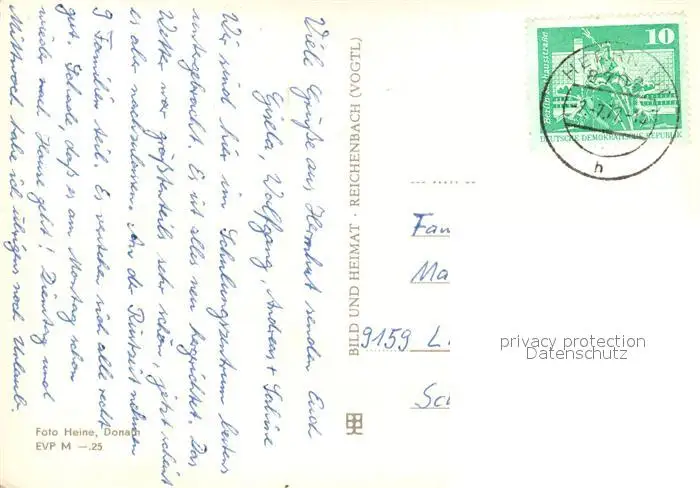 Viele Grüße aus Herrnhut senden Euch
Gisela, Wolfgang, Andreas + Sabine
Wir sind hier im Schulungszentrum bestens
untergebracht. Es ist alles neu hergerichtet. Das
Wetter war größtenteils sehr schön, jetzt scheint
es aber nachzulassen. An der Rüstzeit nehmen
9 Familien teil. Es verstehen sich alle recht
gut. Schade, daß es am Montag schon
wieder nach Hause geht! Dienstag und
Mittwoch habe ich übrigens noch Urlaub.
Foto Heine, Donath
EVP M —.25
BILD UND HEIMAT · REICHENBACH (VOGTL)
10
Berlin, Rathausstraße
DEUTSCHE DEMOKRATISCHE REPUBLIK
HERRNHUT
h
Fam
Ma
9159 L
Sc
privacy protection
Datenschutz